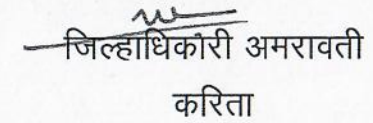 जिल्हाधिकारी अमरावती
करिता